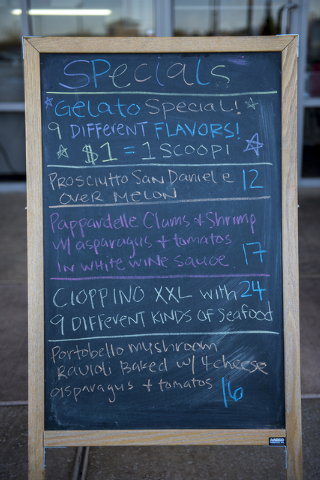 SPecials
Gelato Special!
9 Different FLAVORS!
$1 = 1 SCOOP!
Prosciutto San Daniele 12
over melon
Pappardelle Clams & Shrimp
w/ asparagus & tomatos
in white wine sauce 17
CIOPPINO XXL with 24
9 DIFFERENT KINDS of Seafood
Portobello mushroom
Ravioli Baked w/ 4 cheese
asparagus & tomatos 16